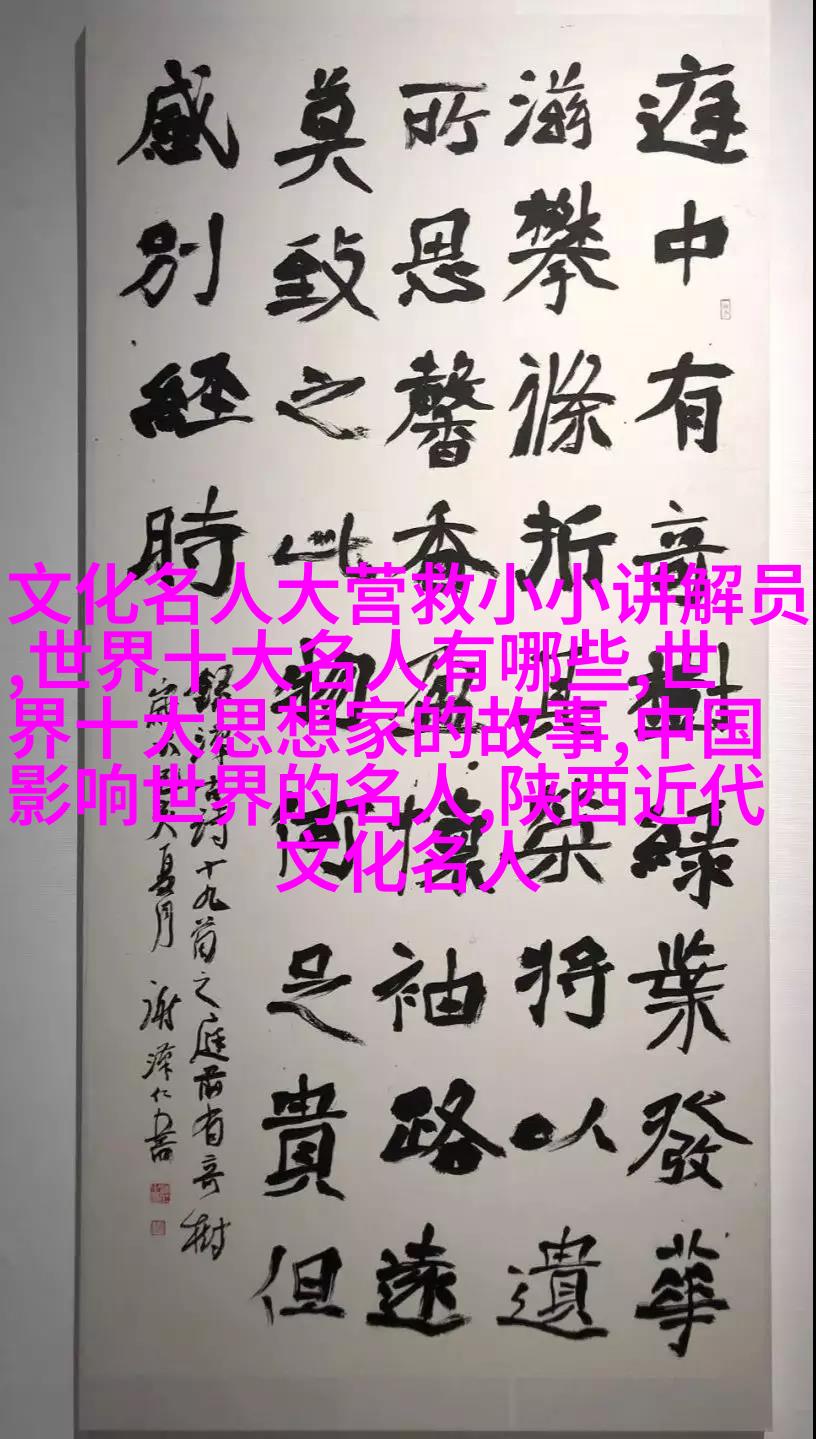 庭中有奇樹緑葉發華
滋攀條折其榮將以遺
所思馨香盈懷袖路遠
莫致之此物何足貴但
感別經時
錄漢古詩十九首之庭前有奇樹
夏月 謝澤仁書
文化名人大营救小小讲解员
,世界十大名人有哪些,世
界十大思想家的故事,中国
影响世界的名人,陕西近代
文化名人